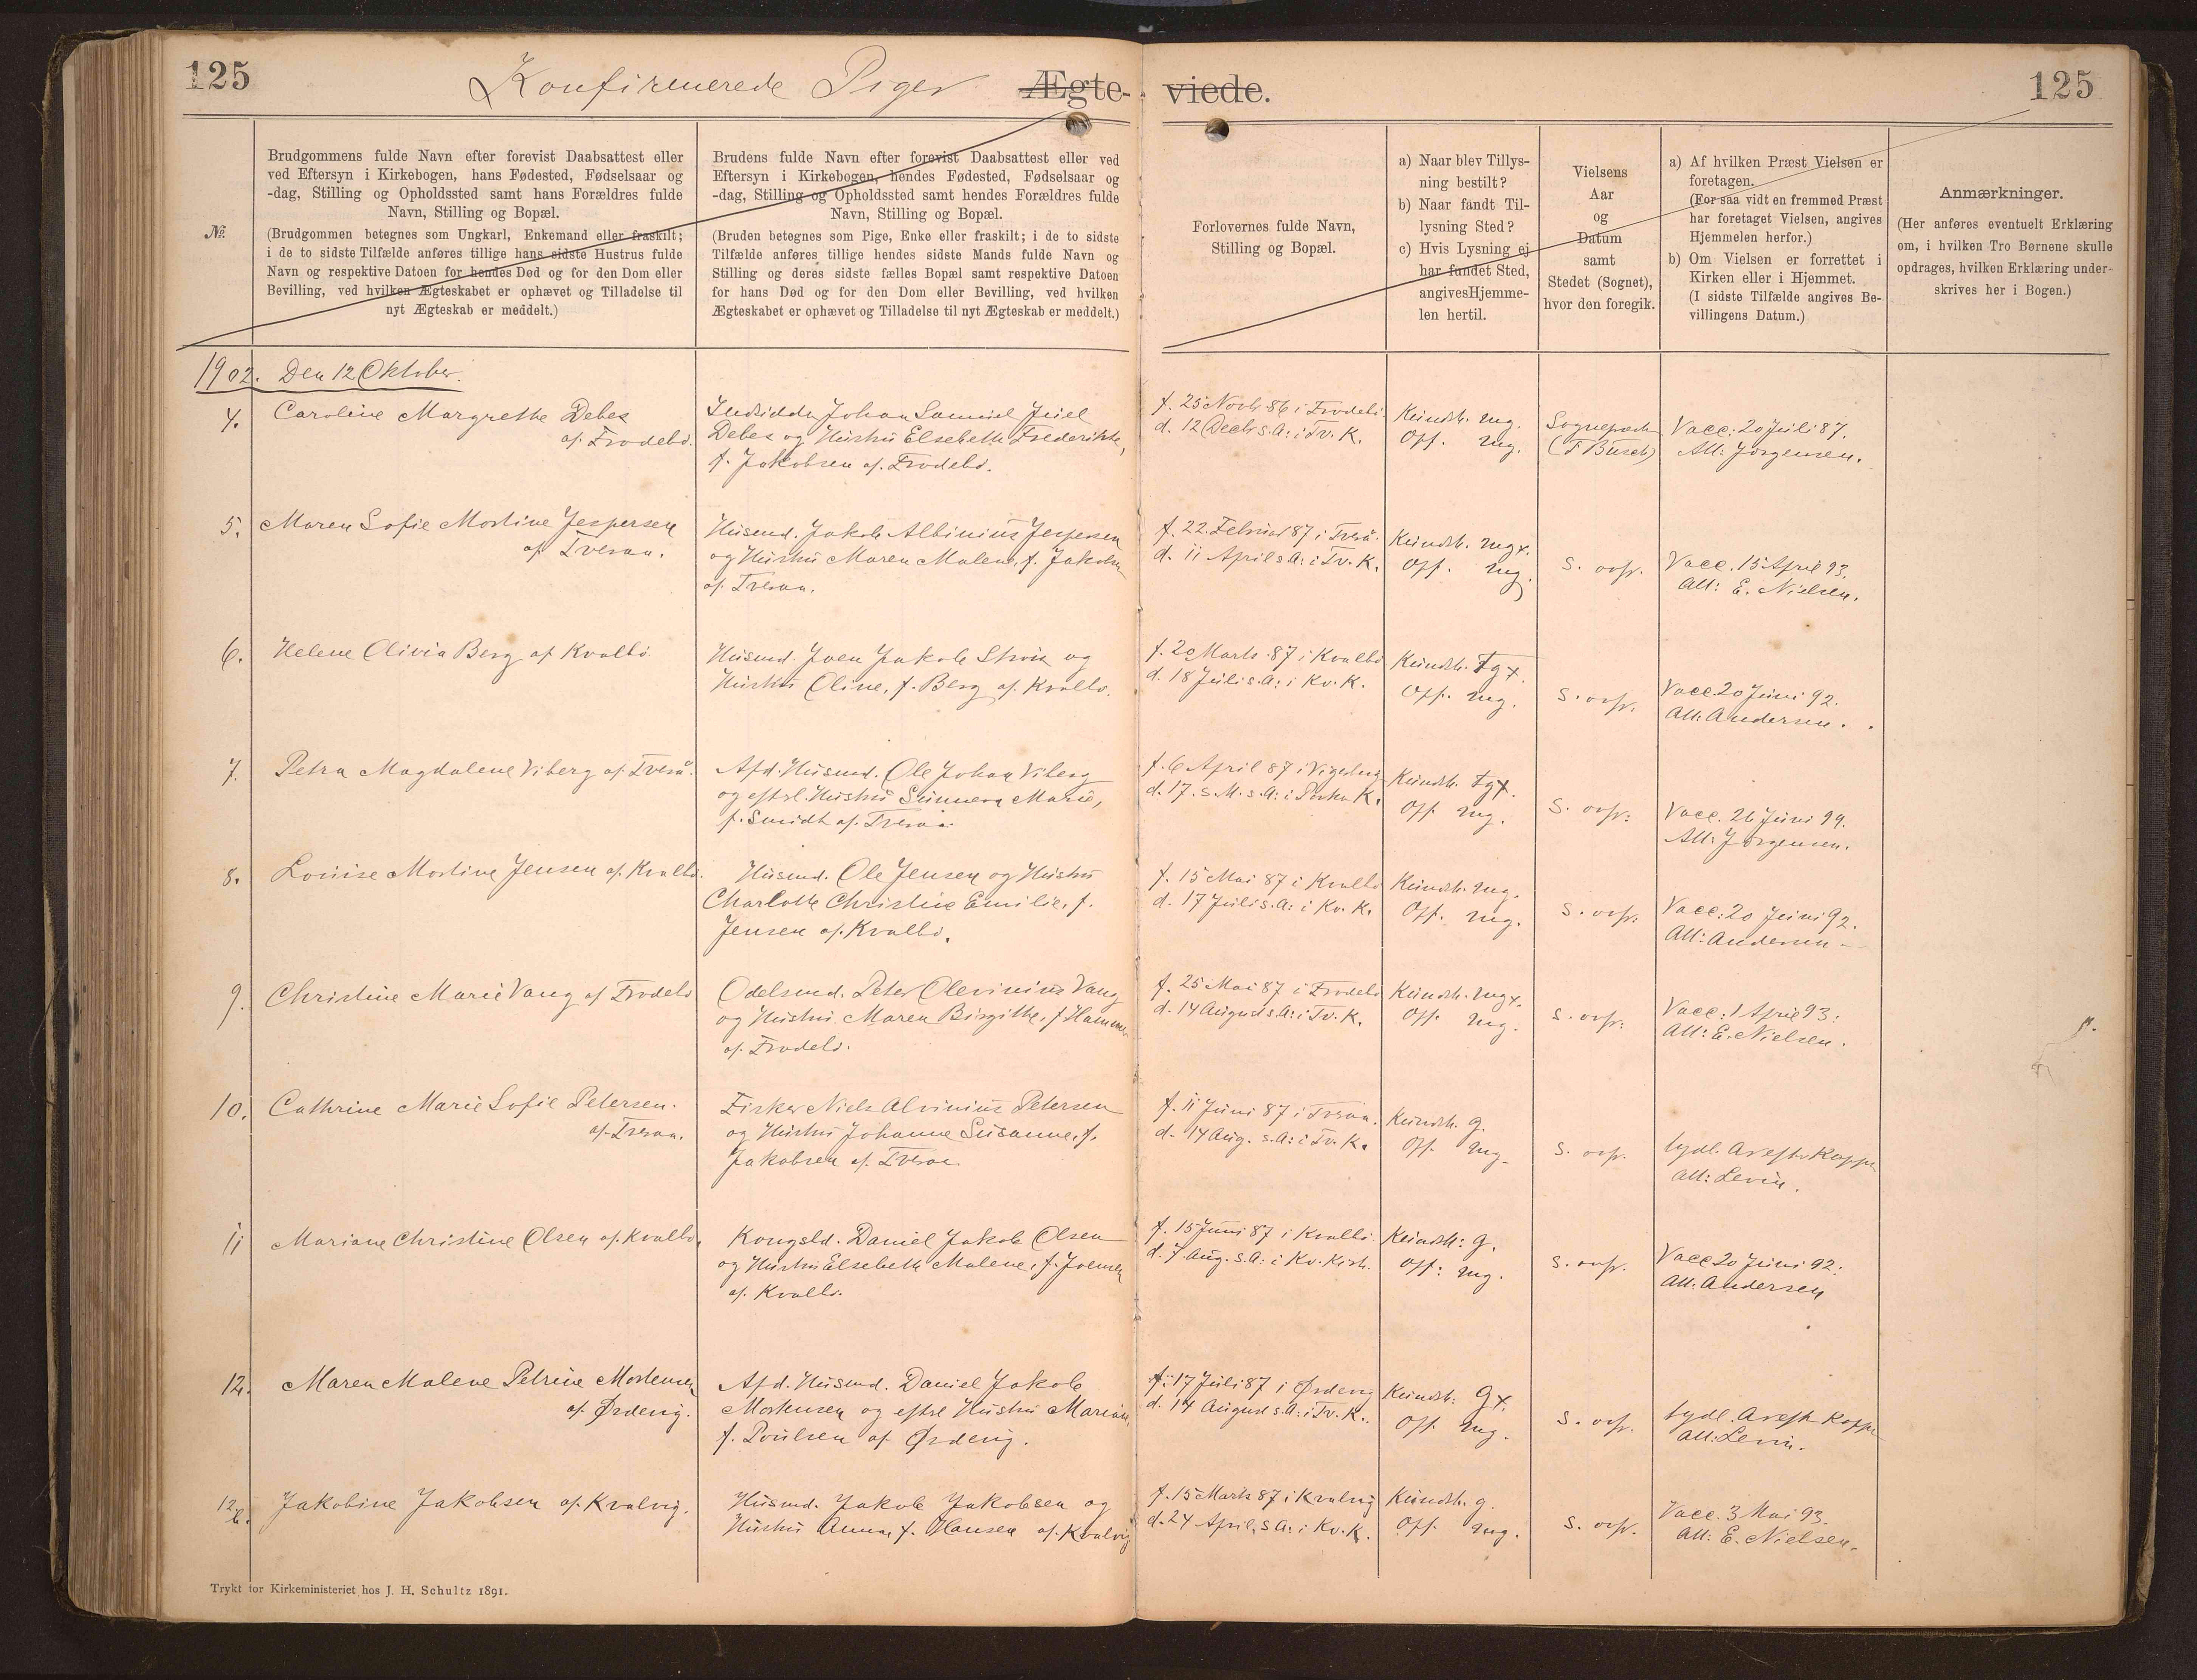 125
Konfirmerede Piger
Ægte-viede.
125
№
Brudgommens fulde Navn efter forevist Daabsattest eller
ved Eftersyn i Kirkebogen, hans Fødested, Fødselsaar og
-dag, Stilling og Opholdssted samt hans Forældres fulde
Navn, Stilling og Bopæl.
(Brudgommen betegnes som Ungkarl, Enkemand eller fraskilt;
i de to sidste Tilfælde anføres tillige hans sidste Hustrus fulde
Navn og respektive Datoen for hendes Død og for den Dom eller
Bevilling, ved hvilken Ægteskabet er ophævet og Tilladelse til
nyt Ægteskab er meddelt.)
Brudens fulde Navn efter forevist Daabsattest eller ved
Eftersyn i Kirkebogen, hendes Fødested, Fødselsaar og
-dag, Stilling og Opholdssted samt hendes Forældres fulde
Navn, Stilling og Bopæl.
(Bruden betegnes som Pige, Enke eller fraskilt; i de to sidste
Tilfælde anføres tillige hendes sidste Mands fulde Navn og
Stilling og deres sidste fælles Bopæl samt respektive Datoen
for hans Død og for den Dom eller Bevilling, ved hvilken
Ægteskabet er ophævet og Tilladelse til nyt Ægteskab er meddelt.)
Forlovernes fulde Navn,
Stilling og Bopæl.
a) Naar blev Tillys-
ning bestilt?
b) Naar fandt Til-
lysning Sted?
c) Hvis Lysning ej
har fundet Sted,
angives Hjemme-
len hertil.
Vielsens
Aar
og
Datum
samt
Stedet (Sognet),
hvor den foregik.
a) Af hvilken Præst Vielsen er
foretagen.
(For saa vidt en fremmed Præst
har foretaget Vielsen, angives
Hjemmelen herfor.)
b) Om Vielsen er forrettet i
Kirken eller i Hjemmet.
(I sidste Tilfælde angives Be-
villingens Datum.)
Anmærkninger.
(Her anføres eventuelt Erklæring
om, i hvilken Tro Børnene skulle
opdrages, hvilken Erklæring under-
skrives her i Bogen.)
1902. Den 12 Oktober.
4.
Caroline Margrethe Debes
af Frodebø.
Johan Samuel Juel
Debes og Hustru Elsebeth Frederikke,
f. Jakobsen af Frodebø.
f. 25 Novb. 86 i Frodebø.
d. 12 Decb. s. A. i Tv. K.
Kundsk. mg.
Opf. mg.
Sognepræsten
(F Busch)
Vacc. 20 Juli 87.
Att: Jørgensen.
5.
Maren Sofie Mortine Jespersen
af Tveraa.
Husmd. Jakob Albinius Jespersen
og Hustru Maren Malene, f. Jakobsen
af Tveraa.
f. 22. Februar 87 i Tverå.
d. 11 April s. A: i Tv. K.
Kundsk. mg+.
Opf. mg.
S. ovfr.
Vacc. 15 April 93.
Att: E. Nielsen.
6.
Helene Olivia Berg af Kvalbø.
Husmd. Joen Jakob Strøm og
Hustru Oline, f. Berg af Kvalbø.
f. 20 Marts 87 i Kvalbø
d. 18 Juli s. A: i Kv. K.
Kundsk. Tg+.
Opf. mg.
S. ovfr.
Vacc. 20 Juni 92.
Att: Andersen.
7.
Petra Magdalene Viberg af Tverå.
Afd. Husmd. Ole Johan Viberg
og eftrl. Hustru Sunneva Marie,
f. Smidt af Tveraa.
f. 6 April 87 i
d. 17. s. M. s. A: i Porke K.
Kundsk. Tg+.
Opf. mg.
S. ovfr:
Vacc. 26 Juni 99.
Att: Jørgensen.
8.
Louise Mortine Jensen af Kvalbø.
Husmd. Ole Jensen og Hustru
Charlotte Christine Emilie, f.
Jensen af Kvalbø.
f. 15 Mai 87 i Kvalbø
d. 17 Juli s. A: i Kv. K.
Kundsk. mg.
Opf. mg.
S. ovfr:
Vacc: 20 Juni 92.
Att: Andersen
9.
Christine Marie Vang af Frodebø
Odelsmd. Peter Olevinius Vang
og Hustru Maren Birgithe, f Hammer
af Frodebø.
f. 25 Mai 87 i Frodebø
d. 14 August s. A: i Tv. K.
Kundsk. mg+.
Opf. mg.
S. ovfr:
Vacc: 1 April 93:
Att: E. Nielsen.
10.
Cathrine Marie Sofie Petersen.
af Tveraa.
Fisker Niels Alvinius Petersen
og Hustru Johanne Susanne, f.
Jakobsen af Tveraa.
f. 11 Juni 87 i Tveraa.
d. 14 Aug. s. A: i Tv. K.
Kundsk. g.
Opf. mg.
S. ovfr.
tydl. Ar efter Kopper
Att: Levin.
11
Mariane Christine Olsen af Kvalbø.
Kongsld. Daniel Jakob Olsen
og Hustru Elsebeth Malene, f. Joensen
af Kvalbø.
f. 15 Juni 87 i Kvalbø.
d. 7 Aug. s. A: i Kv. Kirk.
Kundsk: g.
Opf: mg.
S. ovfr.
Vacc 20 Juni 92:
Att. Andersen
12.
Maren Malene Petrine Mortensen
af Ørdevig.
Afd. Husmd. Daniel Jakob
Mortensen og eftrl Hustru Mariane,
f. Poulsen af Ørdevig.
f. 17 Juli 87 i Ørdevig
d. 14 August s. A: i Tv. K.
Kundsk: g+.
Opf. mg.
S. ovfr.
tydl. Ar efter Kopper
Att: Levin.
12b.
Jakobine Jakobsen af Kvalvig.
Husmd. Jakob Jakobsen og
Hustru Anna, f. Hansen af Kvalvig
f. 15 Marts 87 i Kvalvig
d. 24 April, s A: i Kv. K.
Kundsk. g.
Opf. mg.
S. ovfr.
Vacc. 3 Mai 93.
Att: E. Nielsen.
Trykt for Kirkeministeriet hos J. H. Schultz 1891.